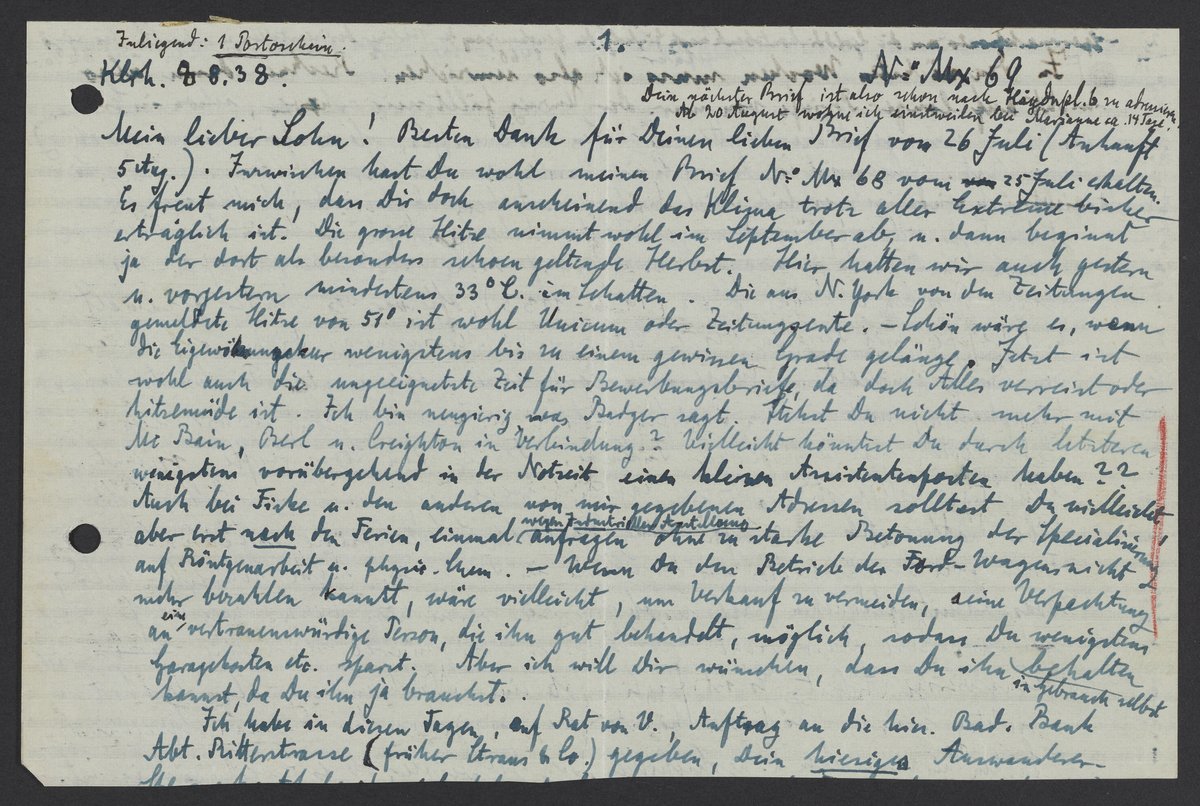 Inliegend: 1 Portoschein.
1.
Klrh. 8 8. 38.
No Mx 69
Dein nächster Brief ist also schon nach Haydnpl. 6 zu adressieren.
Ab 20 August wohne ich einstweilen bei Marianne ca. 14 Tage.
Mein lieber Sohn! Besten Dank für Deinen lieben Brief vom 26 Juli (Ankunft
5 Aug.). Inzwischen hast Du wohl meinen Brief No Mx 68 vom 25 Juli erhalten.
Es freut mich, dass Dir doch anscheinend das Klima trotz aller Extreme bisher
erträglich ist. Die grosse Hitze nimmt wohl im September ab, u. dann beginnt
ja der dort als besonders schoen geltende Herbst. Hier hatten wir auch gestern
u. vorgestern mindestens 33° C. im Schatten. Die aus N. York von den Zeitungen
gemeldete Hitze von 51° ist wohl Unicum oder Zeitungsente. – Schön wäre es, wenn
die wenigstens bis zu einem gewissen Grade gelänge. Jetzt ist
wohl auch die ungeeignetste Zeit für Bewerbungsbriefe, da doch Alles verreist oder
hitzemüde ist. Ich bin neugierig, was Badger sagt. Stehst Du nicht mehr mit
Mc Bain, Berl u. Creighton in Verbindung? Vielleicht könntest Du durch letzteren
wenigstens vorübergehend in der Notzeit einen kleinen Assistentenposten haben??
Auch bei Ficke u. den anderen von mir gegebenen Adressen solltest Du vielleicht
aber erst nach den Ferien, einmal anfragen ohne zu starke Betonung der Specialisierung
wegen industriellen
auf Röntgenarbeit u. physic. Chem. – Wenn Du den Betrieb des Ford-Wagens nicht
mehr bezahlen kannst, wäre vielleicht, um Verkauf zu vermeiden, seine Verpachtung
an eine vertrauenswürdige Person, die ihn gut behandelt, möglich, sodass Du wenigstens
Garagekosten etc. sparst. Aber ich will Dir wünschen, dass Du ihn behalten
in Gebrauch selbst
kannst, da Du ihn ja brauchst.
Ich habe in diesen Tagen, auf Rat von V., Auftrag an die hies. Bad. Bank
Abt. Ritterstrasse (früher Straus & Co.) gegeben, Dein hiesiges Auswanderer-